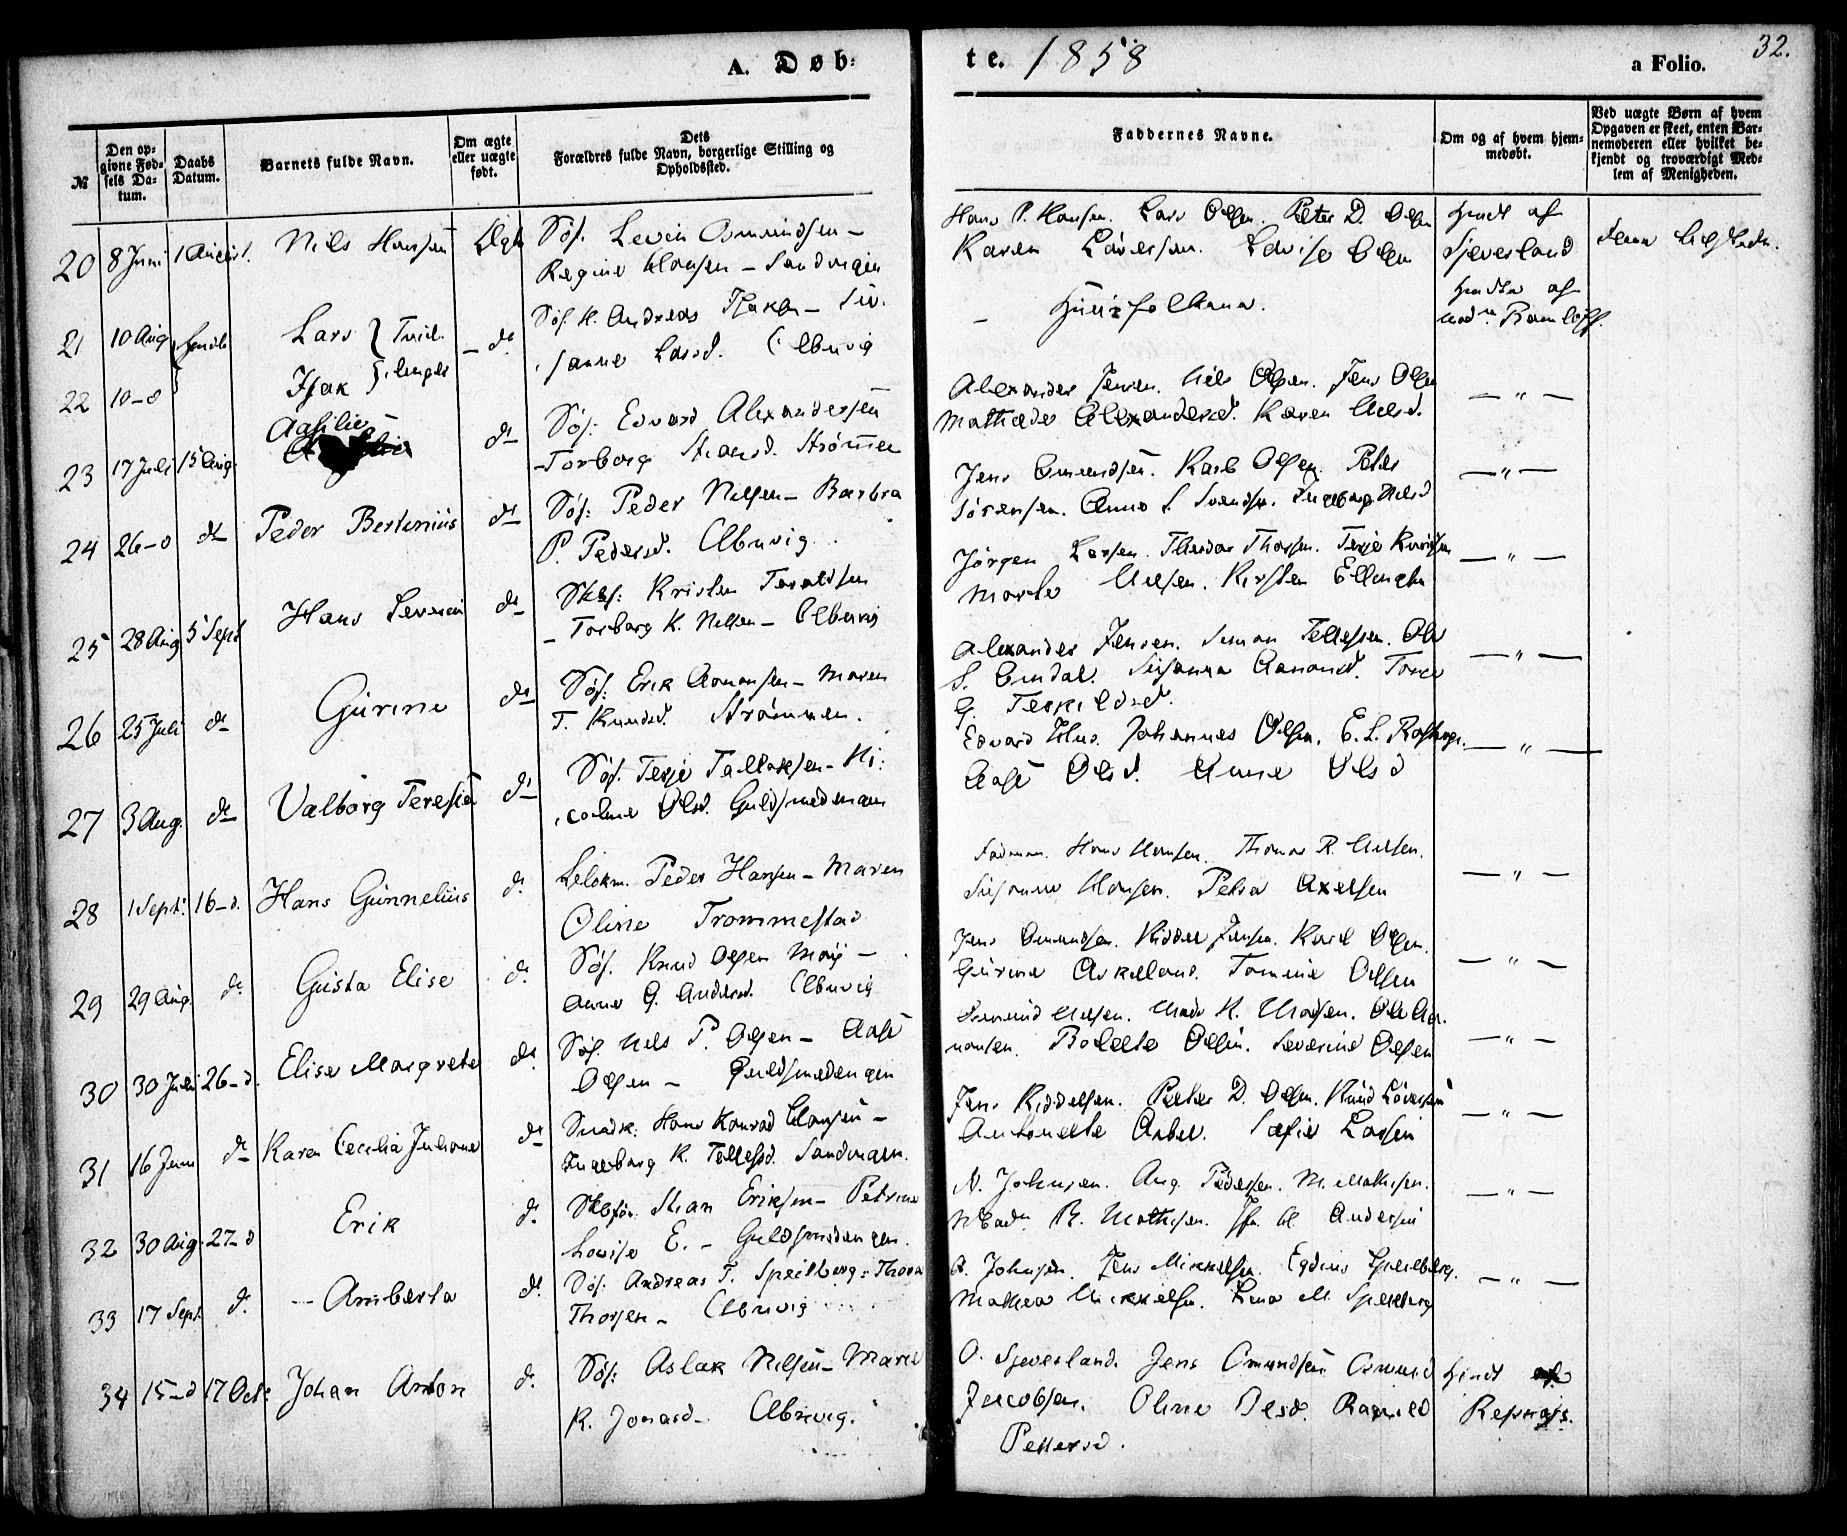 A. Døb-
te. 1858
a Folio.
32.
№
Den op-
givne Fød-
sels Da-
tum.
Daabs
Datum.
Barnets fulde Navn.
Om ægte
eller uægte
født.
Dets
Forældres fulde Navn, borgerlige Stilling og
Opholdssted.
Faddernes Navne.
Om og af hvem hjem-
medøbt.
Ved uægte Børn af hvem
Opgaven er skeet, enten Bar-
nemoderen eller hvilket be-
kjendt og troværdigt Med-
lem af Menigheden.
20 8 Juni 1 August. Nils Hansen Ægte Søf. Levin Osmundsen –
Regine Hansen – Sandvigen
Hans P. Hansen. Lars Olsen. Peter D. Olsen
Karen Löversen. Lovise Olsen
Hjmdt af
Sjeverland
21 10 Aug Lars } Tvil- – do Søf. H. Andreas Isaksen – Su-
22 10–d Isak } linger sanne Larsd. Ulbuvig
– Huusfolkene.
Hmdte af
Mad.
23 17 Juli 15 Aug. Aasilie do Søf: Edvard Alexandersen
Torborg Stiansd. Strømmen
Alexander Jensen. Nils Olsen. Jens Olsen
Mathæder Alexandersd. Karen Nilsd. – " –
24 26–d do Peder Bertinius do Søf: Peder Nilsen – Barbra
P. Pedersd. Ulbuvig.
Jens Omundsen. Karl Olsen. Peter
Sørensen. Anne S. Svendsen. Ingeborg Nilsd – " –
25 28 Aug 5 Sept Hans Severin do Skbf: Kristen Taraldsen
– Torborg K. Nilsen – Ulbuvig
Jørgen Larsen. Theodor Thorsen. Terje Knudsen
Marte Nilsen. Kirsten Ellingsen – " –
26 25 Juli do Gurine do Søf: Erik Aanonsen – Maren
T. Knudsd. Strømmen.
Alexander Jensen. Simon Tellefsen. Ole
S. Omdal. Susanna Aanonsd. Tone
G. Terkildsd. – " –
27 3 Aug. do Valborg Teresia do Søf. Terje Tallaksen – Ni-
coline Olsd. Guldsmedengen
Edvard Hus. Johannes Olsen. E. L. – " –
Aase Olsd. Anne Olsd
28 1 Sept. 16–d. Hans Gunnelius d. Peder Hansen – Maren
Oline Trommestad
Fadren. Hans Hansen. Thomas R. Nilsen.
Susanne Hansen. Petra Axelsen – " –
29 29 Aug. do Gusta Elise d. Søf. Knud Olsen Møy –
Anne G. Andersd. Ulbuvig
Jens Omundsen. Kiddel Jensen. Karl Olsen.
Gurine Askeland. Tomine Olsen – " –
30 30 Juli 26–d. Elise Margrete do Søf. Nils P. Olsen – Aase
Olsen – Guldsmedengen
Nilsen. Mads H. Madsen. Ole Aa-
nonsen. Bolette Olsen. Severine Olsen – " –
31 16 Juni do Karen Cecilia Juliane do Snedk: Hans Konrad Hansen –
Ingeborg K. Tellefsd. Sandvigen.
Jens Kiddelsen. Peter D. Olsen. Knud Löversen
Antonette Lassen – " –
32 30 Aug. 27–d Erik d. Skbfør. Stian Eriksen – Petrine
Lovise E. – Guldsmedengen.
N. Johnsen. Aug. Pedersen. M. Mathisen.
R. Mathisen. Andersen – " –
33 17 Sept. d. – Amberta d. Søf. Andreas T. Speilberg – Thora
Thorsen – Ulbuvig
A. Johnsen. Jens Mikkelsen. Egdius Speilberg.
Mathea Mikkelsen. Lena M. Speilberg – " –
34 15–d 17 Oct: Johan Anton d. Søf: Aslak Nilsen – Maren
K. Jonasd – Ulbuvig.
O. Sjeverland. Jens Omundsen Osmund
Jacobsen. Oline Olsd. Ragnild
Pettersd.
Hjmdt af
Repnæs.